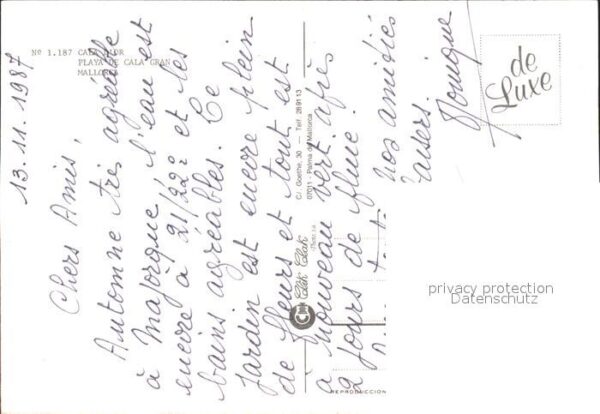 Nº 1.187 CALA D'OR
PLAYA DE CALA GRAN
MALLORCA
13.11.1987
Chers Amis,
Automne très agréable
à Majorque, l'eau est
encore à 21/22º et les
bains agréables. Le
Jardin est encore plein
de fleurs et tout est
à nouveau vert après
2 jours de pluie.
Nos amitiés
Baisers.
Monique
C/. Goethe, 30 — Telf. 289113
07011 - Palma de Mallorca
Clik Clak
REPRODUCCION
de
Luxe
privacy protection
Datenschutz